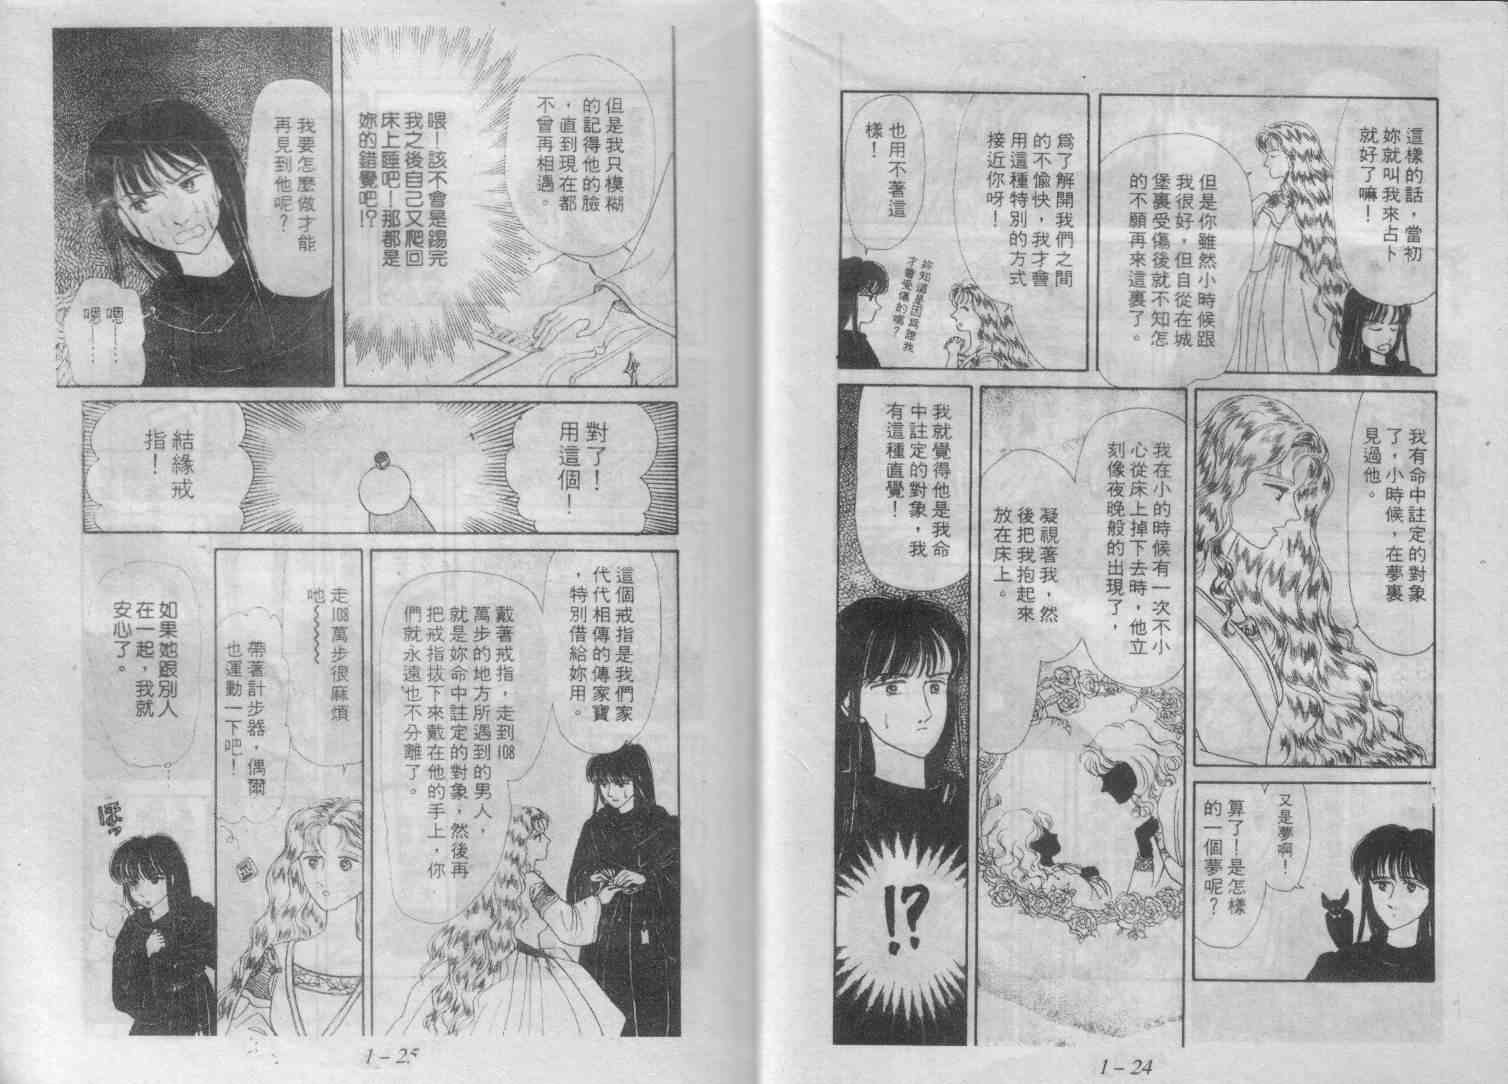 這樣的話，當初
妳就叫我來占卜
就好了嘛！
但是你雖然小時候跟
我很好，但自從在城
堡裏受傷後就不知怎
的不願再來這裏了。
為了解開我們之間
的不愉快，我才會
用這種特別的方式
接近你呀！
也用不著這
樣！
妳知道是因為誰我
才會受傷的嗎？
我有命中註定的對象
了，小時候，在夢裏
見過他。
又是夢啊！
算了！是怎樣
的一個夢呢？
我在小的時候有一次不小
心從床上掉下去時，他立
刻像夜晚般的出現了，
凝視著我，然
後把我抱起來
放在床上。
我就覺得他是我命
中註定的對象，我
有這種直覺！
!?
1－24
但是我只模糊
的記得他的臉
，直到現在都
不曾再相遇。
喂！該不會是踢完
我之後自己又爬回
床上睡吧！那都是
妳的錯覺吧!?
我要怎麼做才能
再見到他呢？
嗯……
嗯……
對了！
用這個！
結緣戒
指！
這個戒指是我們家
代代相傳的傳家寶
，特別借給妳用。
戴著戒指，走到108
萬步的地方所遇到的男人，
就是妳命中註定的對象，然後再
把戒指拔下來戴在他的手上，你
們就永遠也不分離了。
走108萬步很麻煩
吔～～～
帶著計步器，偶爾
也運動一下吧！
如果她跟別人
在一起，我就
安心了。
1－25